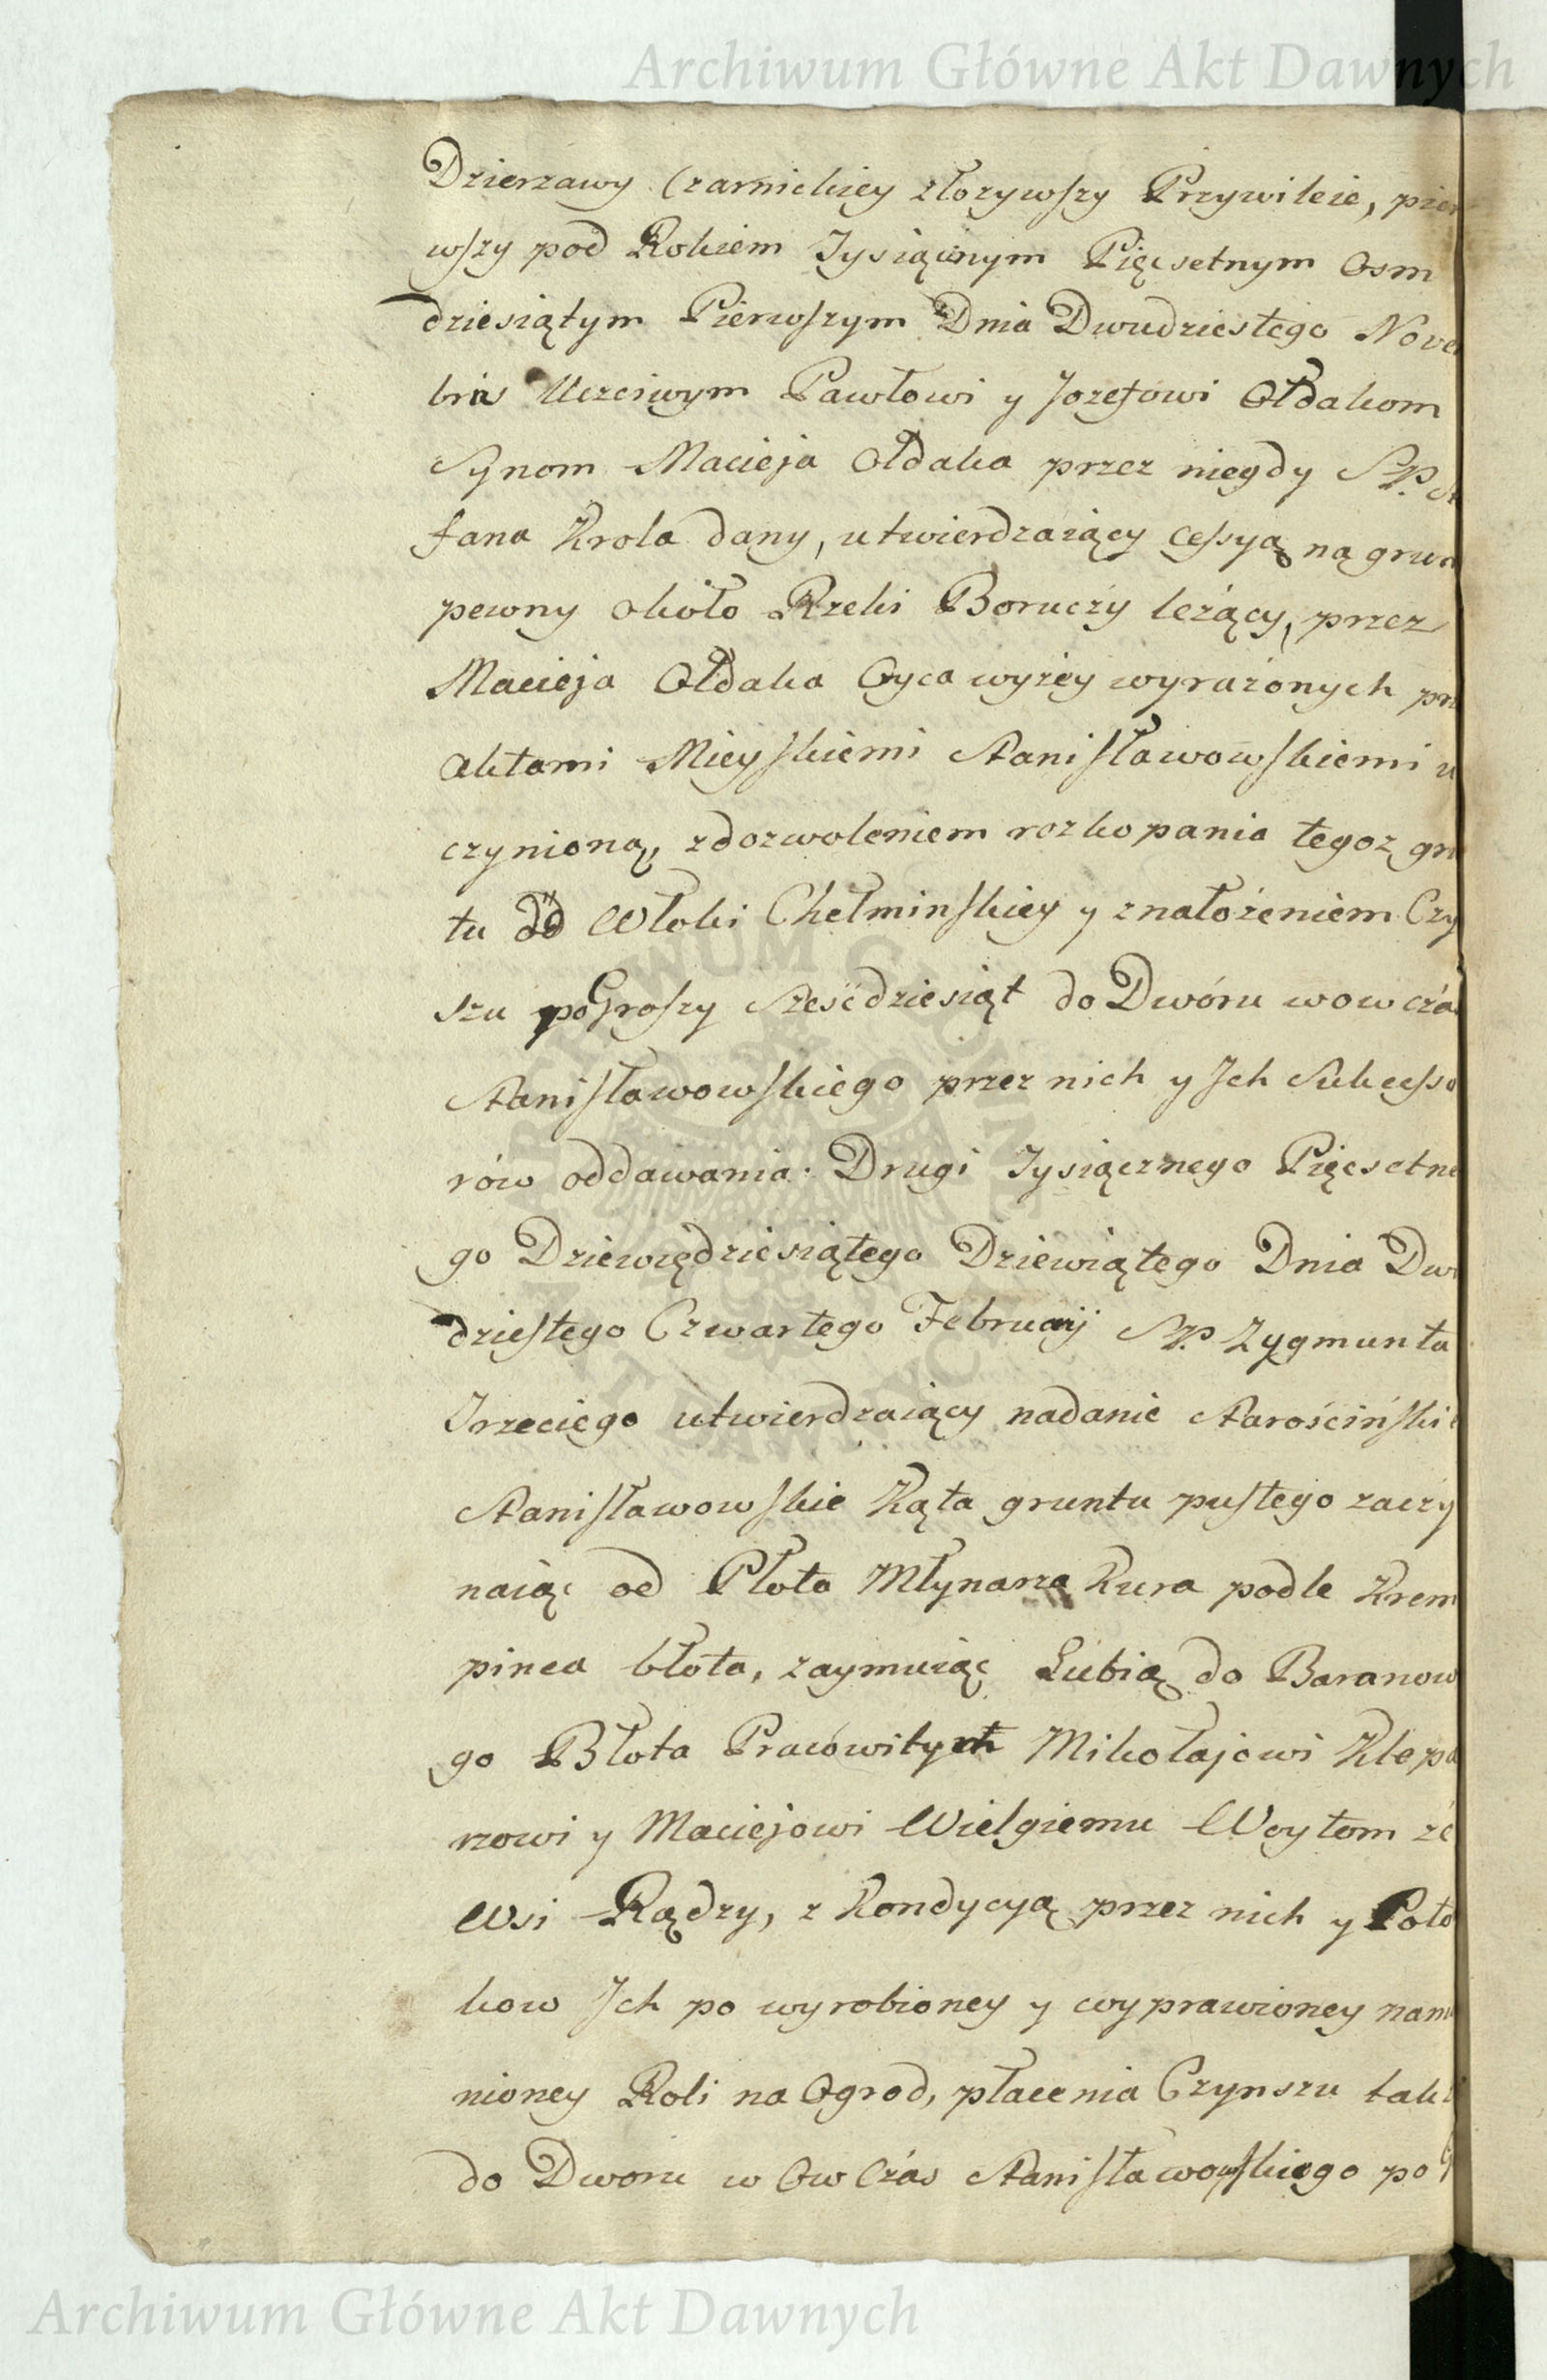 Archiwum Główne Akt Dawnych
Dzierzawy Czarnickiey złozywszy Przywileie, pier
wszy pod Rokiem Tysiącnym Pięcsetnym Osm
dziesiątym Pierwszym Dnia Dwudziestego Nove
bris Uczciwym Pawłowi y Jozefowi Ołdakom
Synom Macieja Ołdaka przez niegdy S. P. Ste
fana Krola dany, utwierdzaiący cessyą na grun
pewny około Rzeki Boruczy leźący, przez
Macieja Ołdaka Oyca wyźey wyraźonych prz
Aktami Mieyskiemi Stanisławowskiemi u
czynioną, zdozwoleniem rozkopania tegoz gru
tu od Włoki Chełminskiey y znałoźeniem Czy
szu po Groszy Sześćdziesiąt do Dwóru wowczas
Stanisławowskiego przez nich y Jch Sukcesso
rów oddawania. Drugi Tysiącznego Pięcsetne
go Dziewiędziesiątego Dziewiątego Dnia Dwu
dziestego Czwartego Februarij S. P. Zygmunta
Trzeciego utwierdzaiący nadanie Starościńskie
Stanisławowskie Kąta gruntu pustego zaczy
naiąc od Płota Młynarza Kura podle Krem
pinca błota, zaymuiąc Lubią do Baranow
go Błota Pracowitym Mikołajowi Klepa
rzowi y Maciejowi Wielgiemu Woytom ze
Wsi Rądzy, z Kondycyą przez nich y Poto
kow Jch po wyrobioney y wyprawioney nami
nioney Roli na Ogrod, płacenia Czynszu takż
do Dworu w Ow Czas Stanisławowskiego po
ARCHIWUM GŁÓWNE AKT DAWNYCH
Archiwum Główne Akt Dawnych